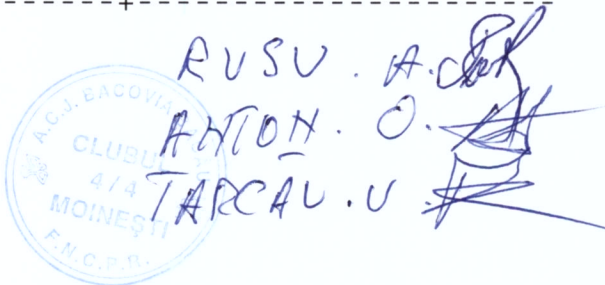 RUSU . A.
ANTON . O.
TARCĂU . V
A.C.J. BACOVIA
CLUBUL
4/4
MOINEȘTI
F.N.C.P.R.